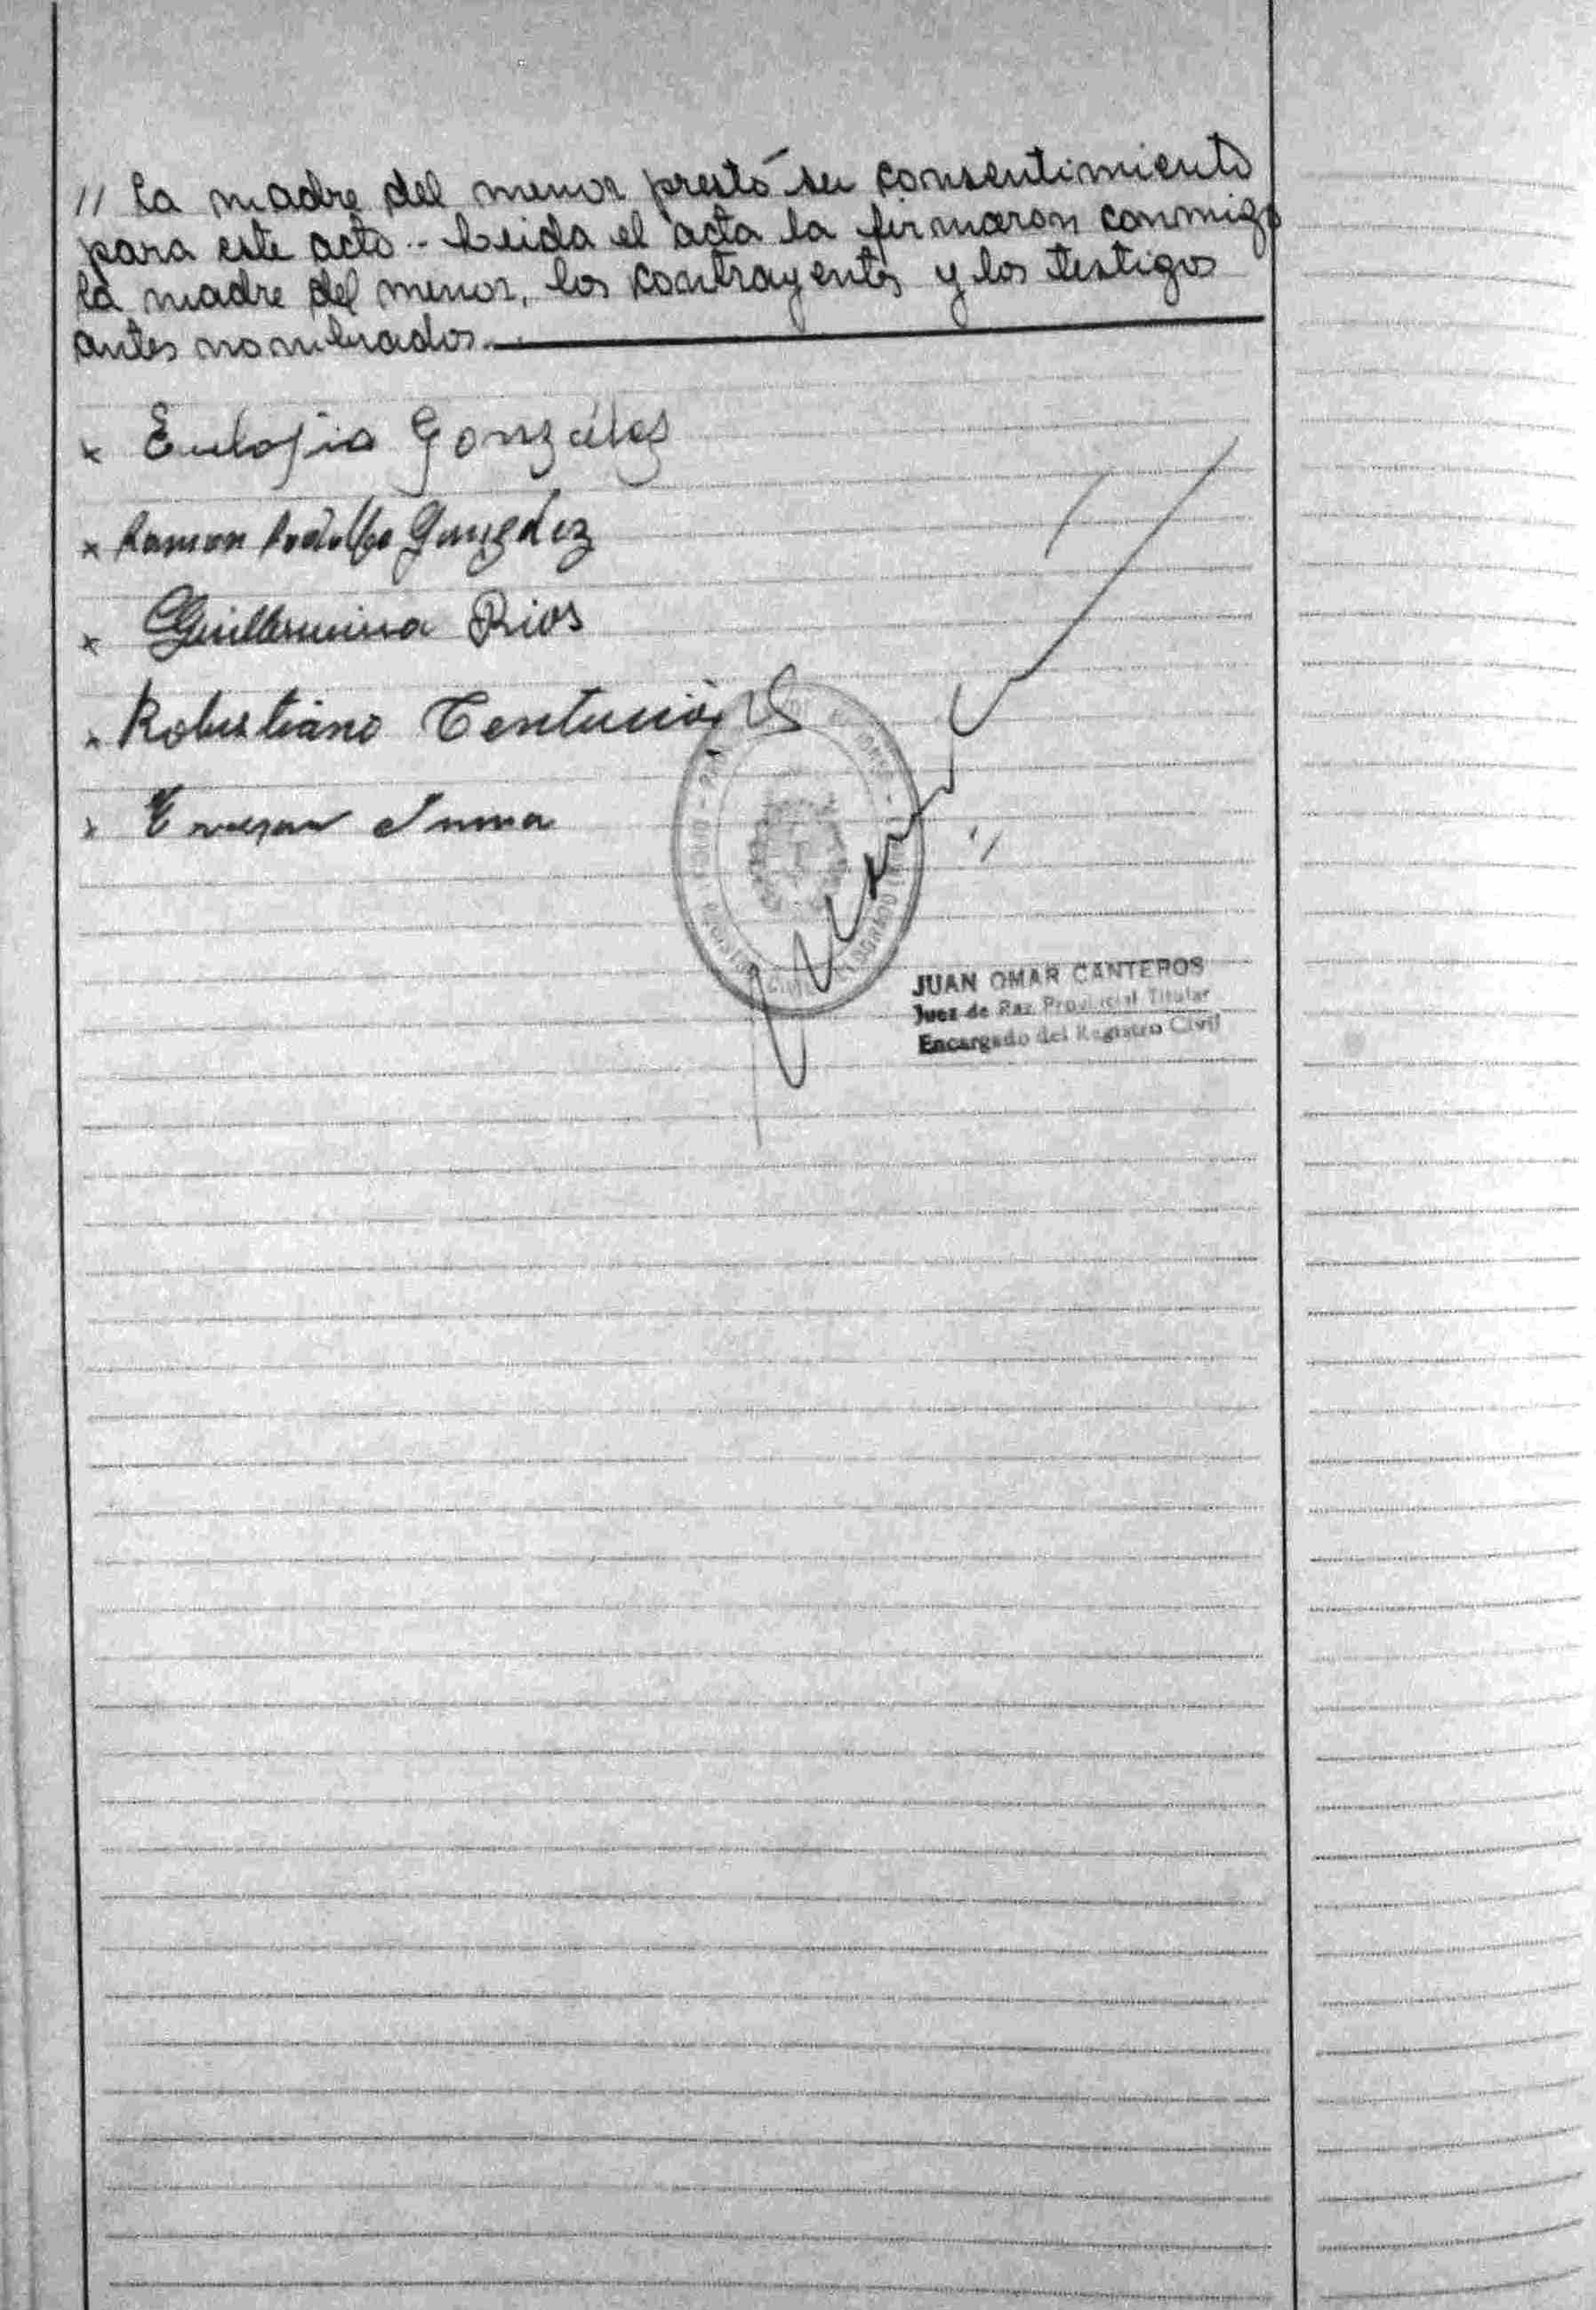 // La madre del menor prestó su consentimiento
para este acto.- Leida el acta la firmaron conmigo
la madre del menor, los contrayentes y los testigos
antes nombrados.
x Eulojia González
x Ramon Rodolfo González
x Guillermina Rios
x Robustiano
x
JUAN OMAR CANTEROS
Juez de Paz Provincial Titular
Encargado del Registro Civil